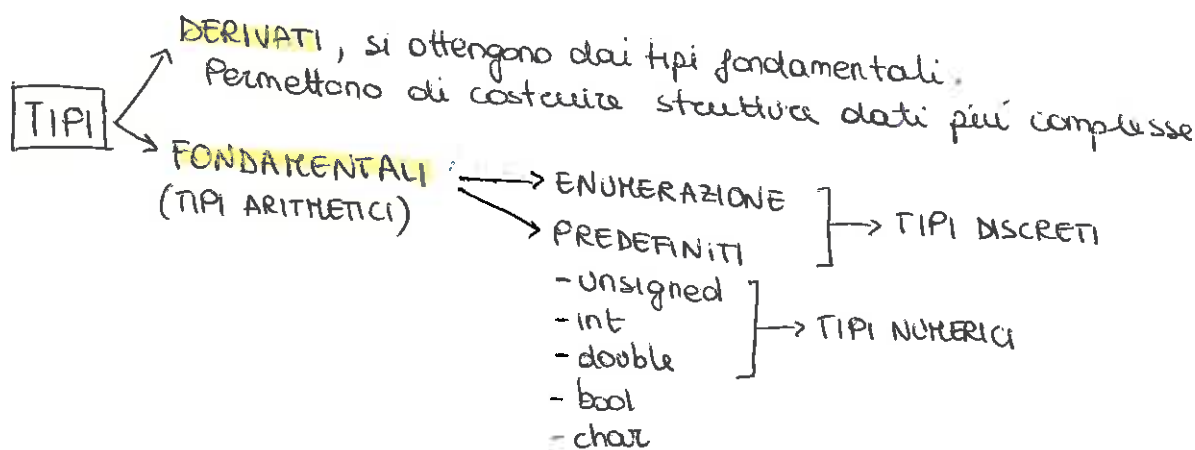 DERIVATI, si ottengono dai tipi fondamentali.
Permettono di costruire struttura dati più complesse
TIPI
FONDAMENTALI:
(TIPI ARITMETICI)
ENUMERAZIONE
PREDEFINITI
TIPI DISCRETI
- unsigned
- int
- double
TIPI NUMERICI
- bool
- char